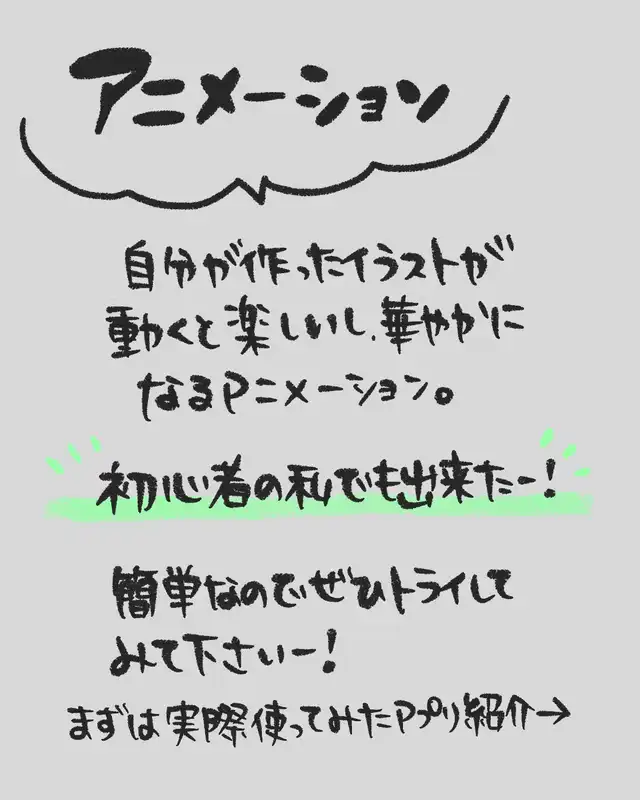 アニメーション
自分が作ったイラストが
動くと楽しいし、華やかに
なるアニメーション。
初心者の私でも出来たー!
簡単なのでぜひトライして
みて下さいー!
まずは実際使ってみたアプリ紹介→